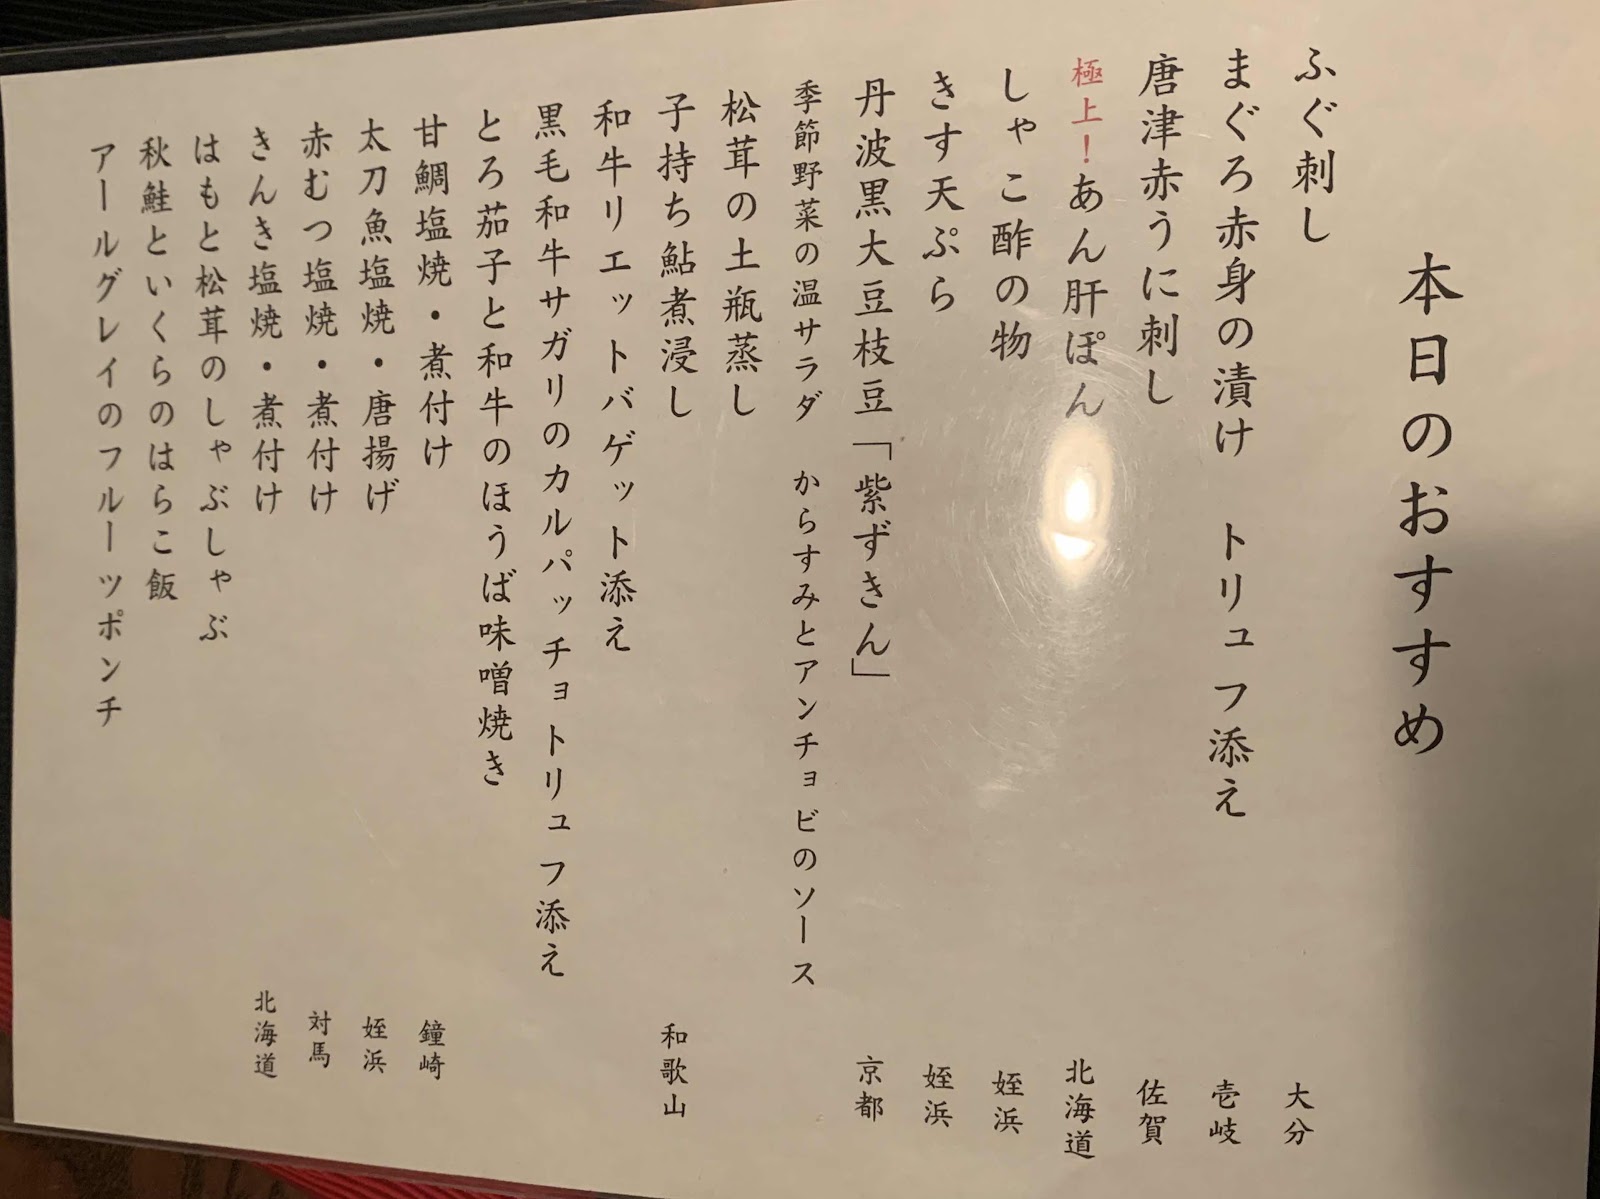 本日のおすすめ
ふぐ刺し 大分
まぐろ赤身の漬け トリュフ添え 壱岐
唐津赤うに刺し 佐賀
極上！あん肝ぽん 北海道
しゃこ酢の物 姪浜
きす天ぷら 姪浜
丹波黒大豆枝豆「紫ずきん」 京都
季節野菜の温サラダ からすみとアンチョビのソース
松茸の土瓶蒸し
子持ち鮎煮浸し 和歌山
和牛リエットバゲット添え
黒毛和牛サガリのカルパッチョトリュフ添え
とろ茄子と和牛のほうば味噌焼き
甘鯛塩焼・煮付け 鐘崎
太刀魚塩焼・唐揚げ 姪浜
赤むつ塩焼・煮付け 対馬
きんき塩焼・煮付け 北海道
はもと松茸のしゃぶしゃぶ
秋鮭といくらのはらこ飯
アールグレイのフルーツポンチ